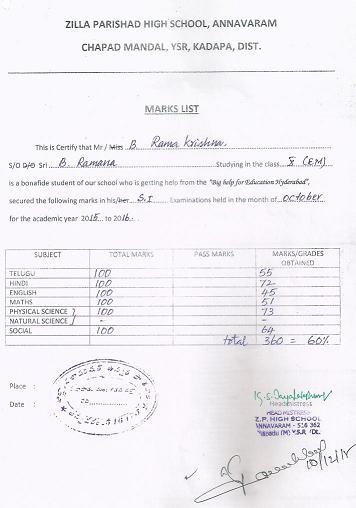 ZILLA PARISHAD HIGH SCHOOL, ANNAVARAM
CHAPAD MANDAL, YSR, KADAPA, DIST.
MARKS LIST
This is Certify that Mr / Miss B. Rama Krishna.
S/O D/O Sri B. Ramana Studying in the class X (E.M)
is a bonafide student of our school who is getting help from the "Big help for Education Hyderabad",
secured the following marks in his/her S.I Examinations held in the month of October
for the academic year 2015 to 2016.
SUBJECT TOTAL MARKS PASS MARKS MARKS/GRADES OBTAINED
TELUGU 100 55
HINDI 100 72
ENGLISH 100 45
MATHS 100 51
PHYSICAL SCIENCE } 100 73
NATURAL SCIENCE } -
SOCIAL 100 64
total 360 = 60%
Place :
Date :
Headmistress
HEADMISTRESS
Z.P. HIGH SCHOOL
ANNAVARAM - 516 362
(M) Y.S.R. Dt.
10/12/15